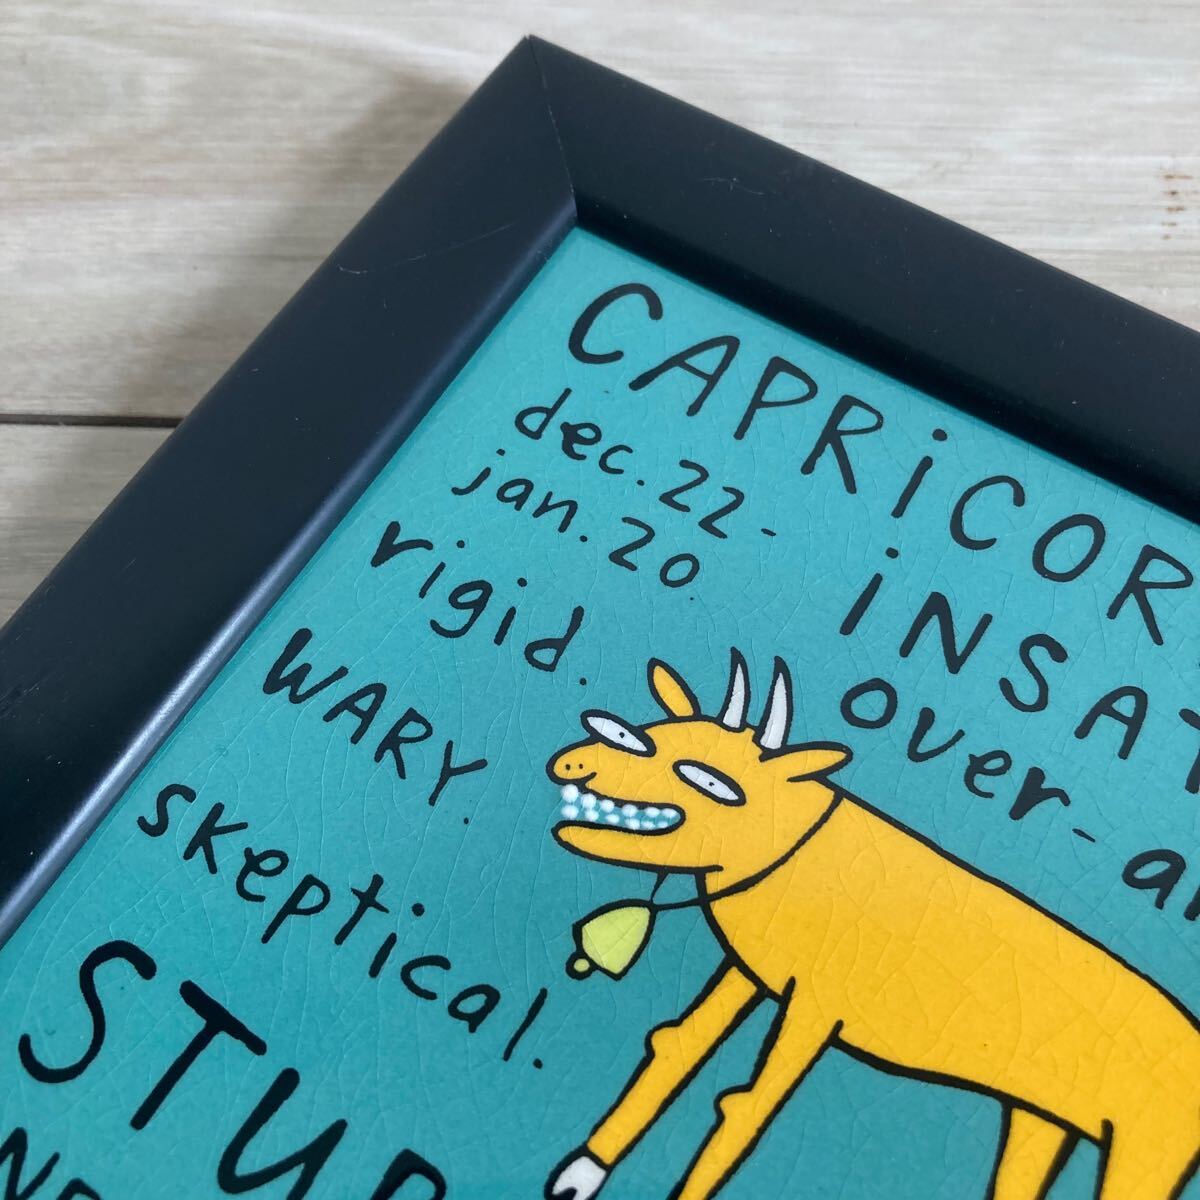 CAPRiCOR
dec. 22 -
jan. 20
iNSAT
rigid.
over-a
WARY.
skeptical.
STUB